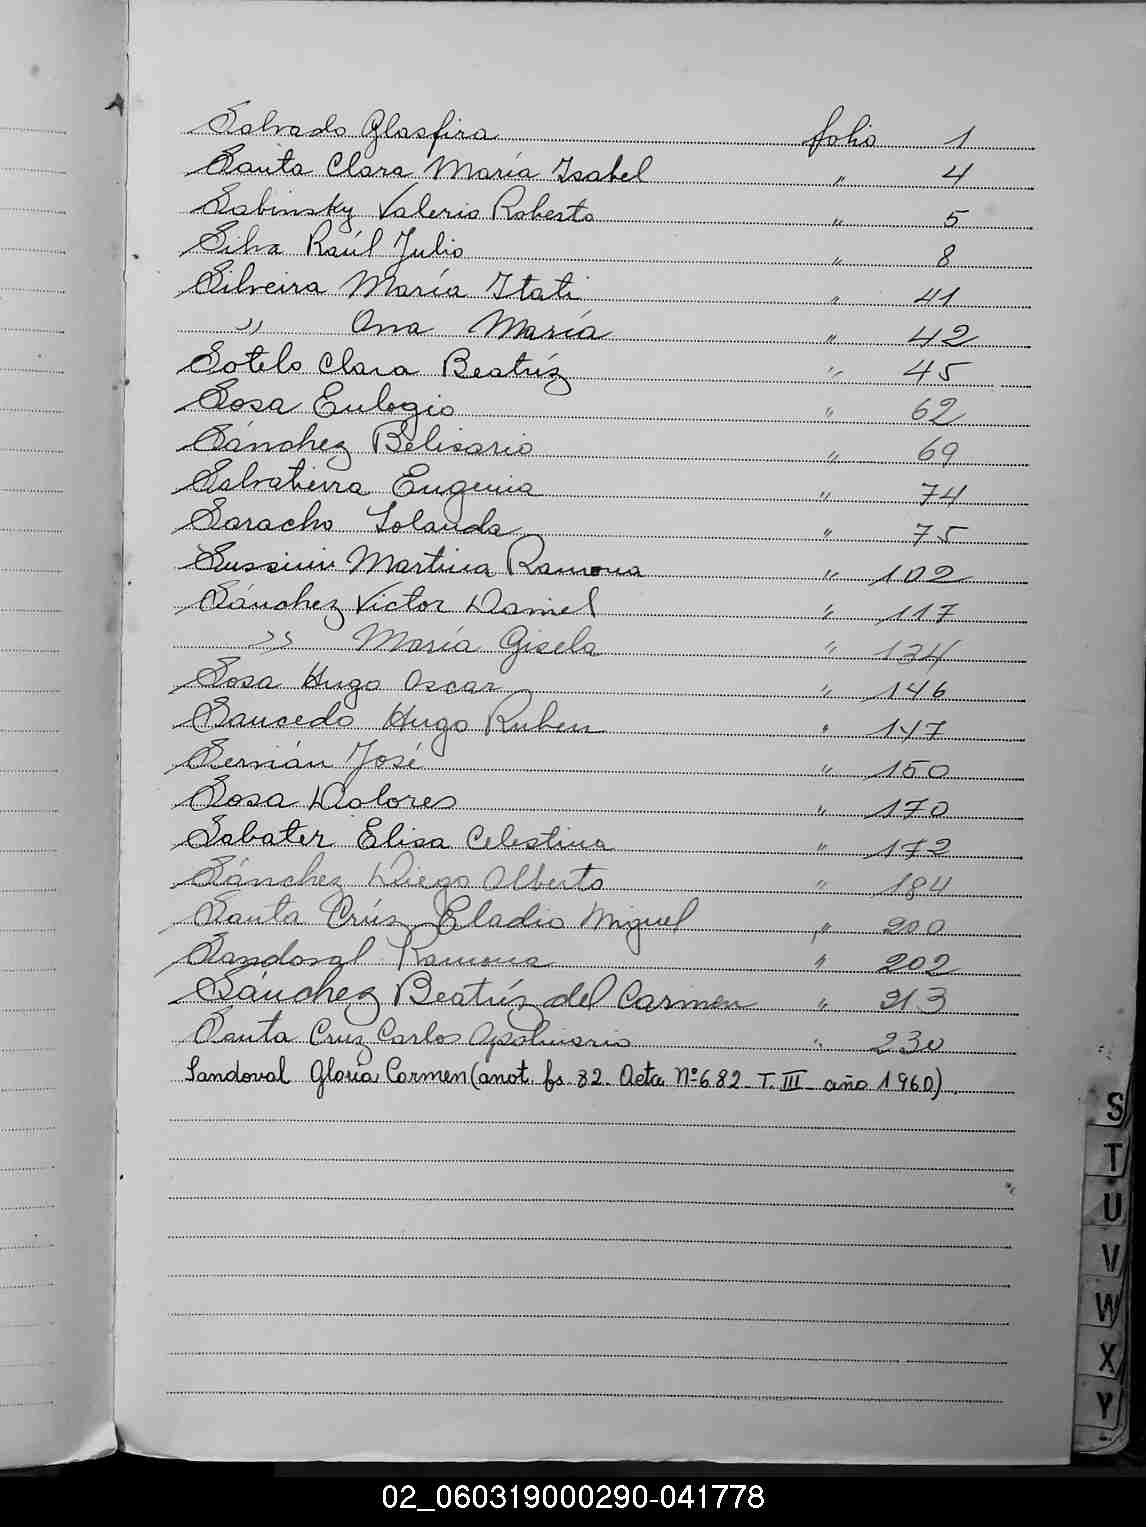 Salvado Glasfira folio 1
Santa Clara María Isabel " 4
Sabinsky Valerio Roberto " 5
Silva Raúl Julio " 8
Silveira María Itati " 41
" Ana María " 42
Sotelo Clara Beatríz " 45
Sosa Eulogio " 62
Sánchez Belisario " 69
Salvatierra Eugenia " 74
Saracho Iolanda " 75
Sussini Martina Ramona " 102
Sánchez Victor Daniel " 117
" María Gisela " 134
Sosa Hugo Oscar " 146
Saucedo Hugo Ruben " 147
Sernián José " 150
Sosa Dolores " 170
Sabater Elisa Celestina " 172
Sánchez Diego Alberto " 184
Santa Crúz Eladio Miguel " 200
Sandoval Ramona " 202
Sánchez Beatríz del Carmen " 213
Santa Cruz Carlos Apolinario " 230
Sandoval Gloria Carmen (anot. fs. 82. Acta Nº 682 - T. III - año 1960)
S
T
U
V
W
X
Y
02_060319000290-041778